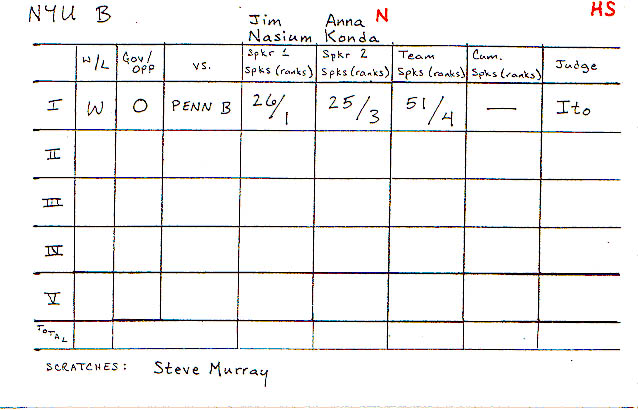 NYU B Jim Anna N HS
Nasium Konda
W/L Gov/ OPP vs. Spkr 1 Spks (ranks) Spkr 2 Spks (ranks) Team Spks (ranks) Cum. Spks (ranks) Judge
I W O PENN B 26/1 25/3 51/4 — Ito
II
III
IV
V
TOTAL
SCRATCHES: Steve Murray